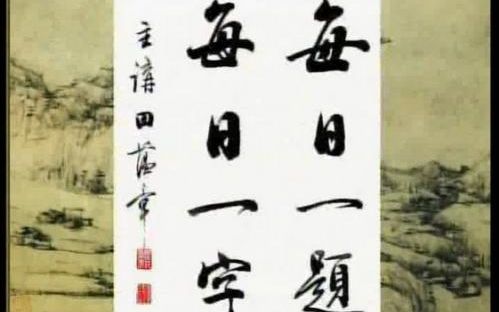 每日一題
每日一字
主講田蕴章